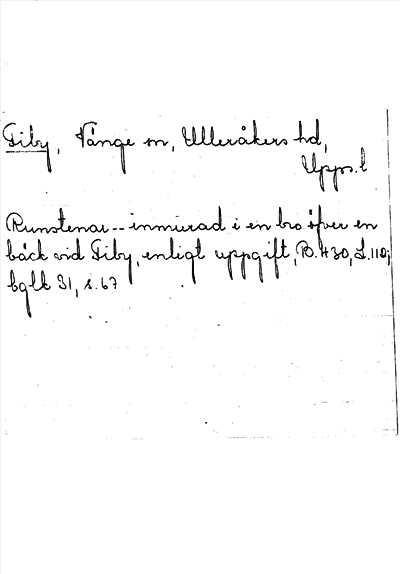 Fiby, Vänge sn, Ulleråkers hd,
Upps. l
Runstenar -- inmurad i en bro öfver en
bäck vid Fiby, enligt uppgift, B. 430, L. 110;
bglk 31, s. 67